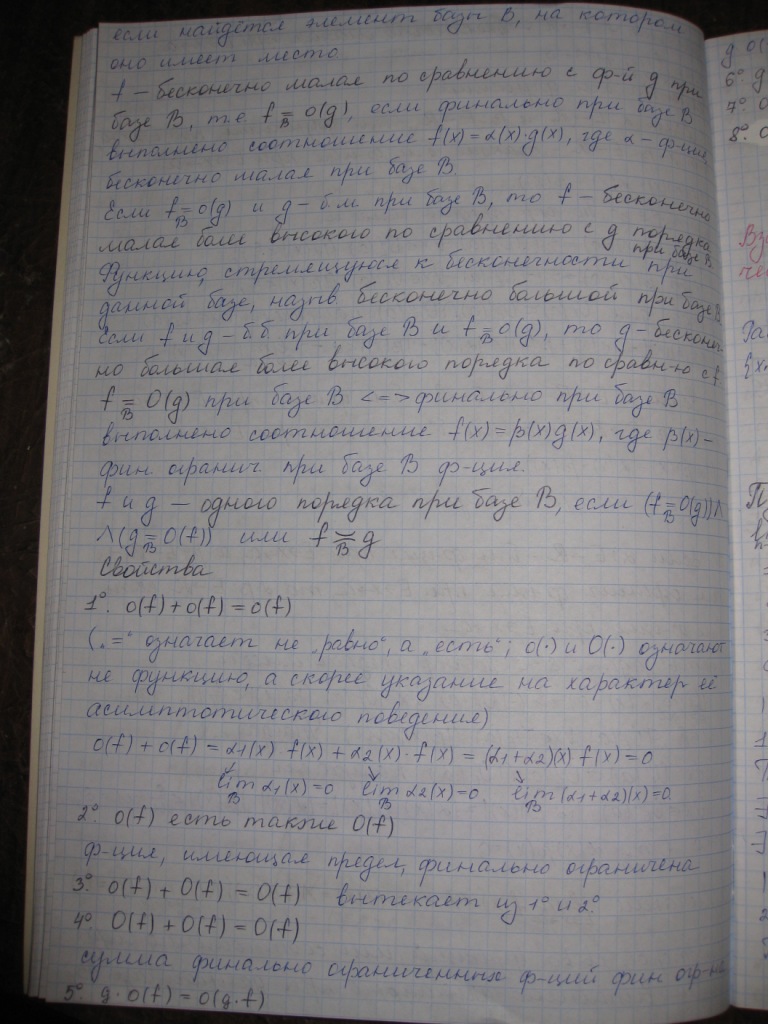 если найдётся элемент базы B, на котором
оно имеет место
f – бесконечно малая по сравнению с ф-й g при
базе B, т.е. f =_B o(g), если финально при базе B
выполнено соотношение f(x) = α(x)·g(x), где α – ф-ция,
бесконечно малая при базе B.
Если f =_B o(g) и g – б.м. при базе B, то f – бесконечно
малая более высокого по сравнению с g порядка
при базе B
Функцию, стремящуюся к бесконечности при
данной базе, назыв. бесконечно большой при базе B
Если f и g – б.б. при базе B и f =_B o(g), то g – бесконеч
но большая более высокого порядка по сравн-ю с f
f =_B O(g) при базе B <=> финально при базе B
выполнено соотношение f(x) = β(x)g(x), где β(x) –
фин. огранич. при базе B ф-ция.
f и g – одного порядка при базе B, если (f =_B O(g)) ∧
∧ (g =_B O(f)) или f ≍_B g
Свойства
1°. o(f) + o(f) = o(f)
(„=“ означает не „равно“, а „есть“; o(·) и O(·) означают
не функцию, а скорее указание на характер её
асимптотического поведения)
o(f) + o(f) = α1(x) f(x) + α2(x)·f(x) = (α1+α2)(x) f(x) = 0
lim_B α1(x) = 0 lim_B α2(x) = 0 lim_B (α1+α2)(x) = 0
2° o(f) есть также O(f)
ф-ция, имеющая предел, финально ограничена
3° o(f) + O(f) = O(f) вытекает из 1° и 2°
4° O(f) + O(f) = O(f)
сумма финально ограниченных ф-ций фин огр-на
5° g·o(f) = o(g·f)
g
6°
7°
8°